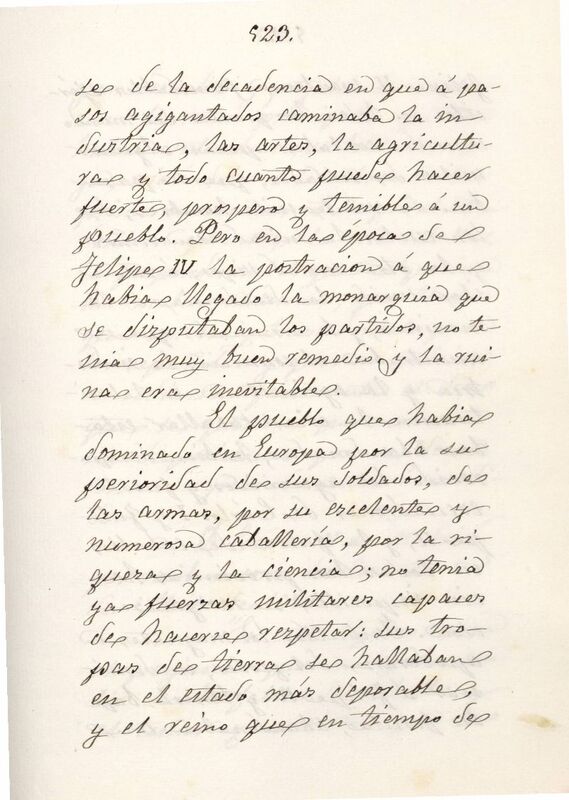 523.
se de la decadencia en que á pa-
sos agigantados caminaba la in
dustria, las artes, la agricultu-
ra y todo cuanto puede hacer
fuerte, prospero y temible á un
pueblo. Pero en la época de
Felipe IV la postracion á que
habia llegado la monarquia que
se disputaban los partidos, no te
nia muy buen remedio y la rui
na era inevitable.
El pueblo que habia
dominado en Europa por la su-
perioridad de sus soldados, de
las armas, por su escelente y
numerosa caballería, por la ri-
queza y la ciencia; no tenia
ya fuerzas militares capaces
de hacerse respetar: sus tro-
pas de tierra se hallaban
en el estado más deporable,
y el reino que en tiempo de